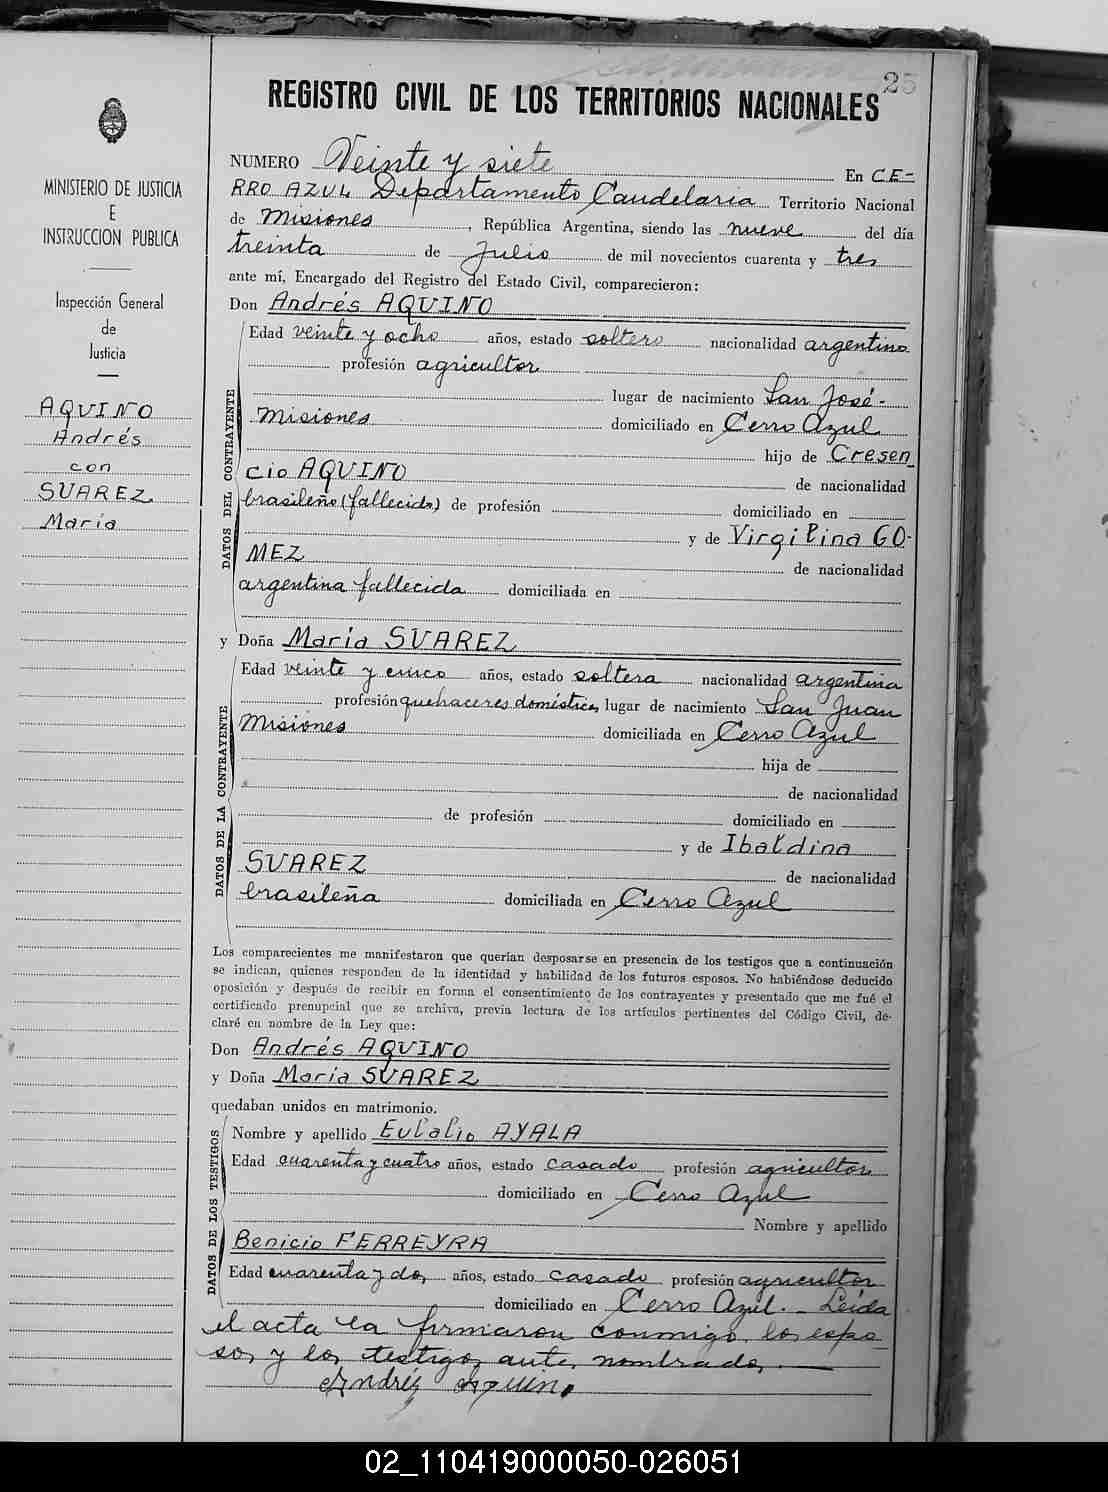 25
REGISTRO CIVIL DE LOS TERRITORIOS NACIONALES
MINISTERIO DE JUSTICIA
E
INSTRUCCION PUBLICA
Inspección General
de
Justicia
AQUINO
Andrés
con
SUAREZ
María
NUMERO Veinte y siete En CE-
RRO AZUL Departamento Candelaria Territorio Nacional
de Misiones, República Argentina, siendo las nueve del día
treinta de Julio de mil novecientos cuarenta y tres
ante mí, Encargado del Registro del Estado Civil, comparecieron:
Don Andrés AQUINO
DATOS DEL CONTRAYENTE
Edad veinte y ocho años, estado soltero nacionalidad argentino
profesión agricultor
lugar de nacimiento San José-
Misiones domiciliado en Cerro Azul
hijo de Cresen
cio AQUINO de nacionalidad
brasileño (fallecido) de profesión domiciliado en
y de Virgilina GO-
MEZ de nacionalidad
argentina fallecida domiciliada en
y Doña María SUAREZ
DATOS DE LA CONTRAYENTE
Edad veinte y cinco años, estado soltera nacionalidad argentina
profesión quehaceres domésticos lugar de nacimiento San Juan
Misiones domiciliada en Cerro Azul
hija de
de nacionalidad
de profesión domiciliado en
y de Ibaldina
SUAREZ de nacionalidad
brasileña domiciliada en Cerro Azul
Los comparecientes me manifestaron que querían desposarse en presencia de los testigos que a continuación
se indican, quienes responden de la identidad y habilidad de los futuros esposos. No habiéndose deducido
oposición y después de recibir en forma el consentimiento de los contrayentes y presentado que me fué el
certificado prenupcial que se archiva, previa lectura de los artículos pertinentes del Código Civil, de-
claré en nombre de la Ley que:
Don Andrés AQUINO
y Doña María SUAREZ
quedaban unidos en matrimonio.
DATOS DE LOS TESTIGOS
Nombre y apellido Eulalio AYALA
Edad cuarenta y cuatro años, estado casado profesión agricultor
domiciliado en Cerro Azul
Nombre y apellido
Benicio FERREYRA
Edad cuarenta y dos años, estado casado profesión agricultor
domiciliado en Cerro Azul.- Leída
el acta la firmaron conmigo los espo
sos y los testigos ante nombrados.
Andrés Aquino
02_110419000050-026051